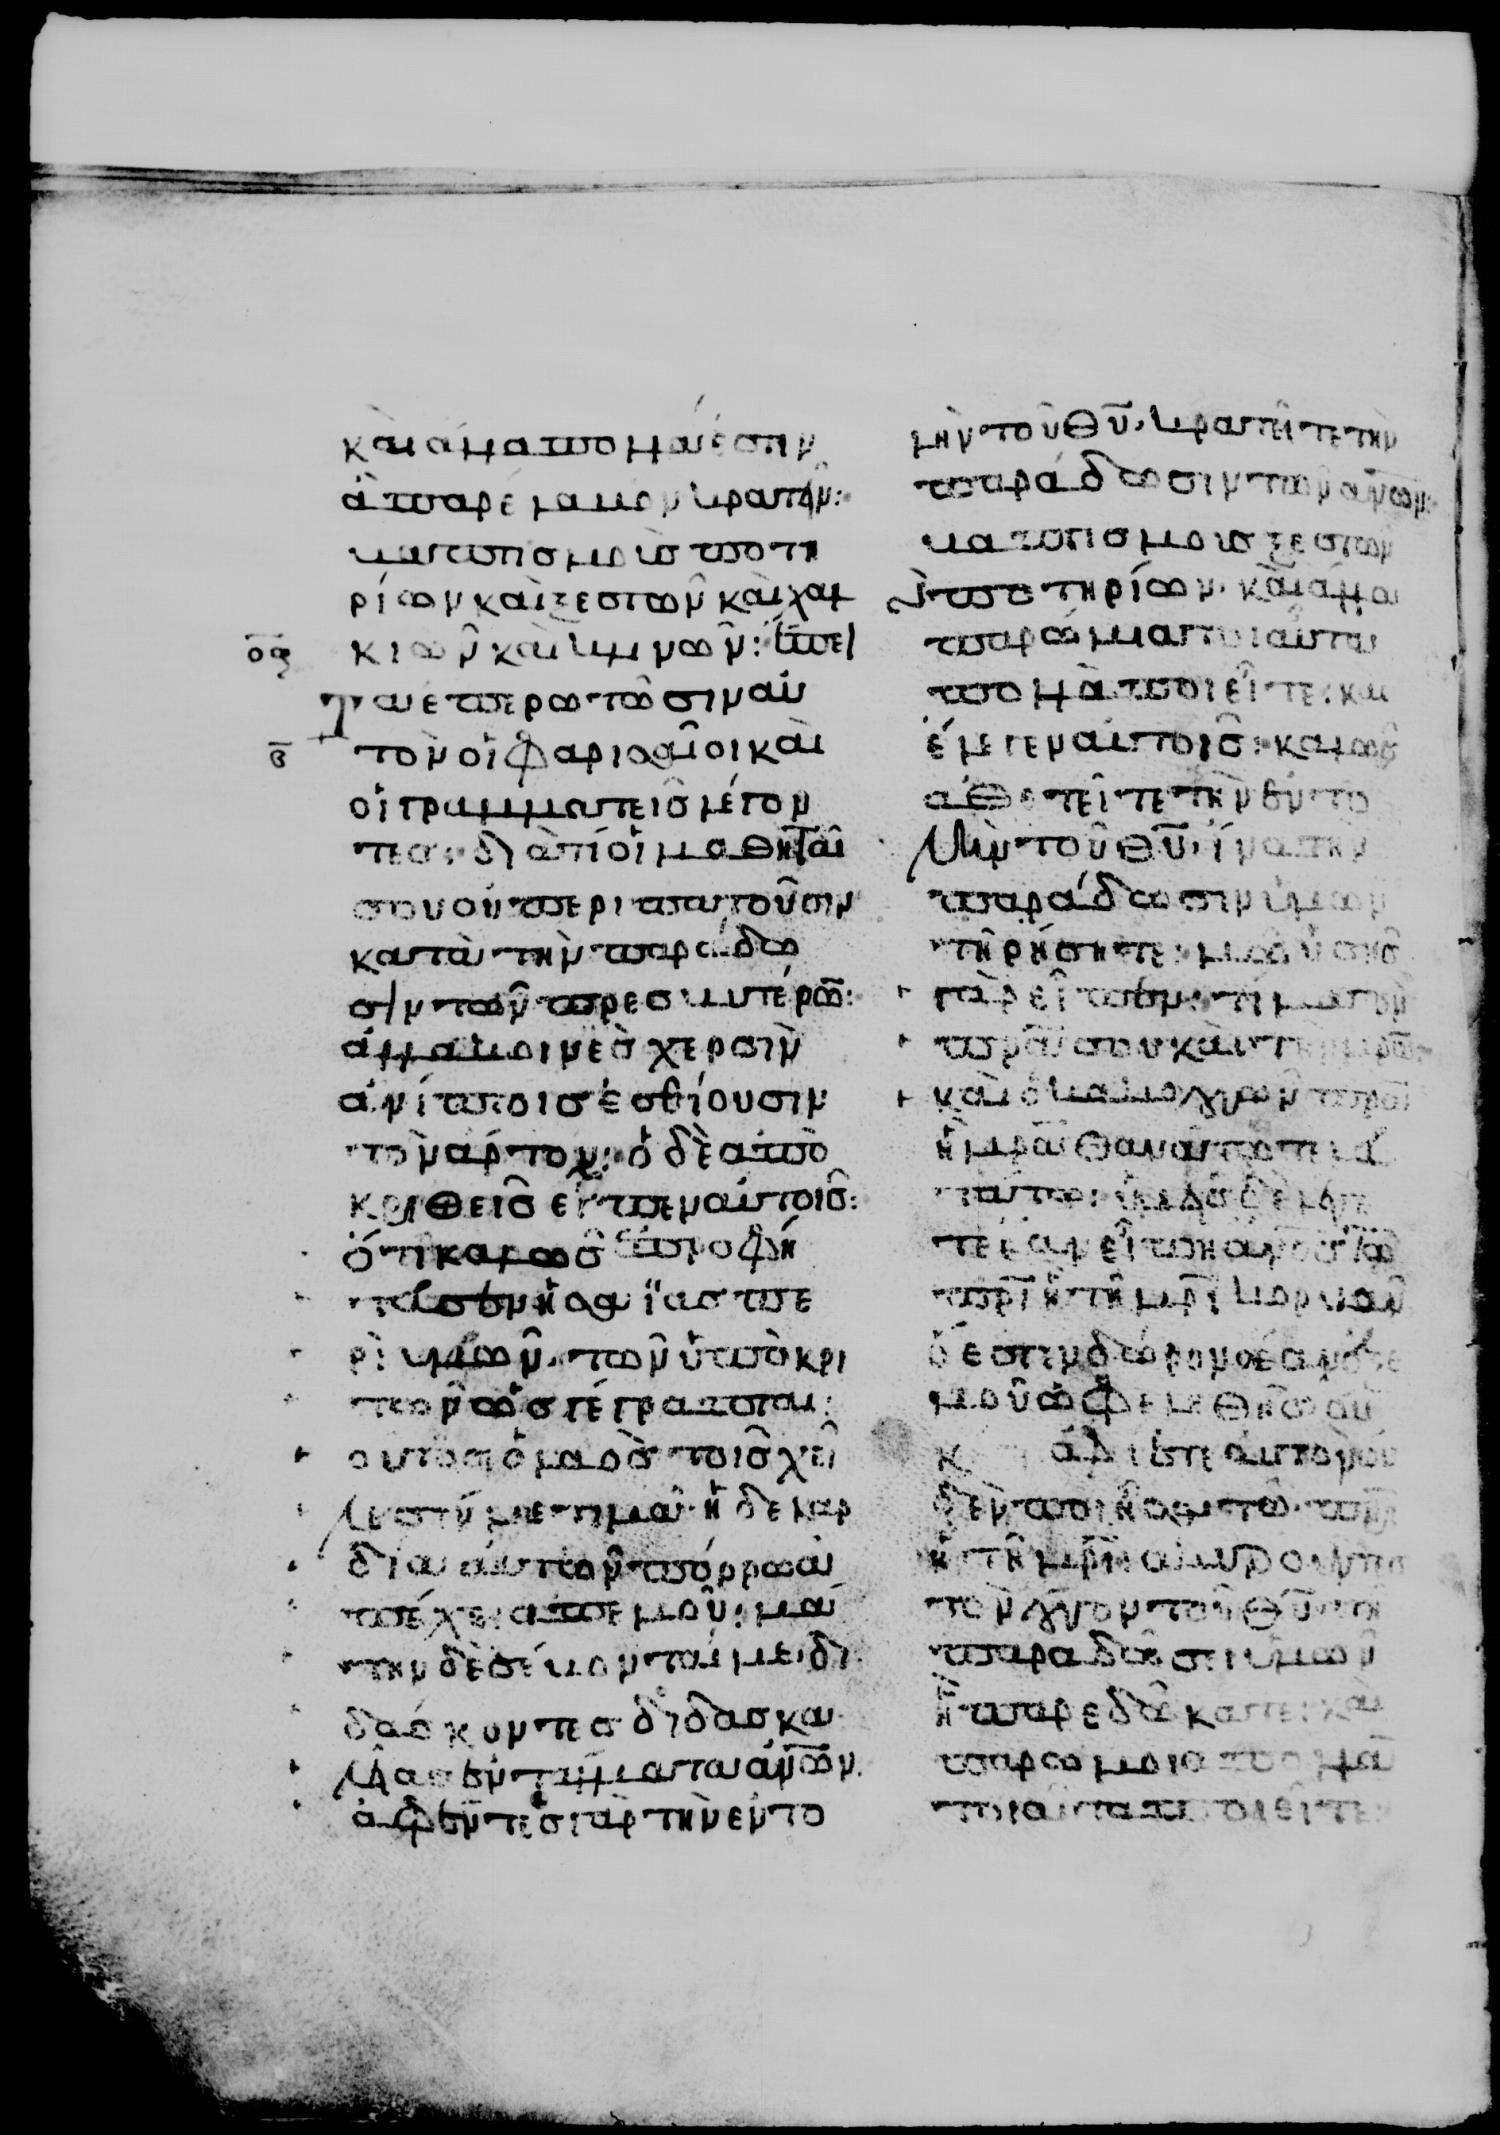 καὶ ἄλλα πολλά ἐστιν
ἃ παρέλαβον κρατεῖν:
βαπτισμοὺς ποτη
ρίων καὶ ξεστῶν καὶ χαλ
ος
κίων καὶ κλινῶν: ἔπει
τα ἐπερωτῶσιν αὐ
β
τὸν οἱ φαρισαῖοι καὶ
οἱ γραμματεῖς λέγον
τες· διατί οἱ μαθηταί
σου οὐ περιπατοῦσιν
κατὰ τὴν παράδο
σιν τῶν πρεσβυτέρων:
ἀλλὰ κοιναῖς χερσὶν
ἀνίπτοις ἐσθίουσιν
τὸν ἄρτον· ὁ δὲ ἀπο
κριθεὶς εἶπεν αὐτοῖς:
ὅτι καλῶς προεφή
τευσεν ἡσαΐας πε
ρὶ ὑμῶν τῶν ὑποκρι
τῶν ὡς γέγραπται:
οὗτος ὁ λαὸς τοῖς χεί
λεσίν με τιμᾷ· ἡ δὲ καρ
δία αὐτῶν πόρρω ἀ
πέχει ἀπ' ἐμοῦ· μά
την δὲ σέβονταί με· δι
δάσκοντες διδασκα
λίας ἐντάλματα ἀνων.
ἀφέντες γὰρ τὴν ἐντο
λὴν τοῦ θυ· κρατεῖτε τὴν
παράδοσιν τῶν ανων:
βαπτισμοὺς ξεστῶν
καὶ ποτηρίων· καὶ ἄλλα
παρόμοια τοιαῦτα
πολλὰ ποιεῖτε· καὶ
ἔλεγεν αὐτοῖς· καλῶς
ἀθετεῖτε τὴν ἐντο
λὴν τοῦ θυ· ἵνα τὴν
παράδοσιν ὑμῶν
τηρήσητε· μωϋσῆς
γὰρ εἶπεν· τίμα τὸν
πρα σου καὶ τὴν μρα
καὶ ὁ κακολογῶν πρα
ἢ μρα θανάτῳ τελευ
τάτω· ὑμεῖς δὲ λέγε
τε ἐὰν εἴπῃ ανος τῷ
πρι ἢ τῇ μρι κορβᾶν
ὅ ἐστιν δῶρον ὃ ἐὰν ἐξ ἐ
μοῦ ὠφεληθῇς οὐ
ἀφίετε αὐτὸν οὐ
δὲν ποιῆσαι τῷ πρι
ἢ τῇ μρι ἀκυροῦντες
τὸν λόγον τοῦ θυ τῇ
παραδόσει ὑμῶν
ᾗ παρεδώκατε· καὶ
παρόμοια πολλὰ
τοιαῦτα ποιεῖτε